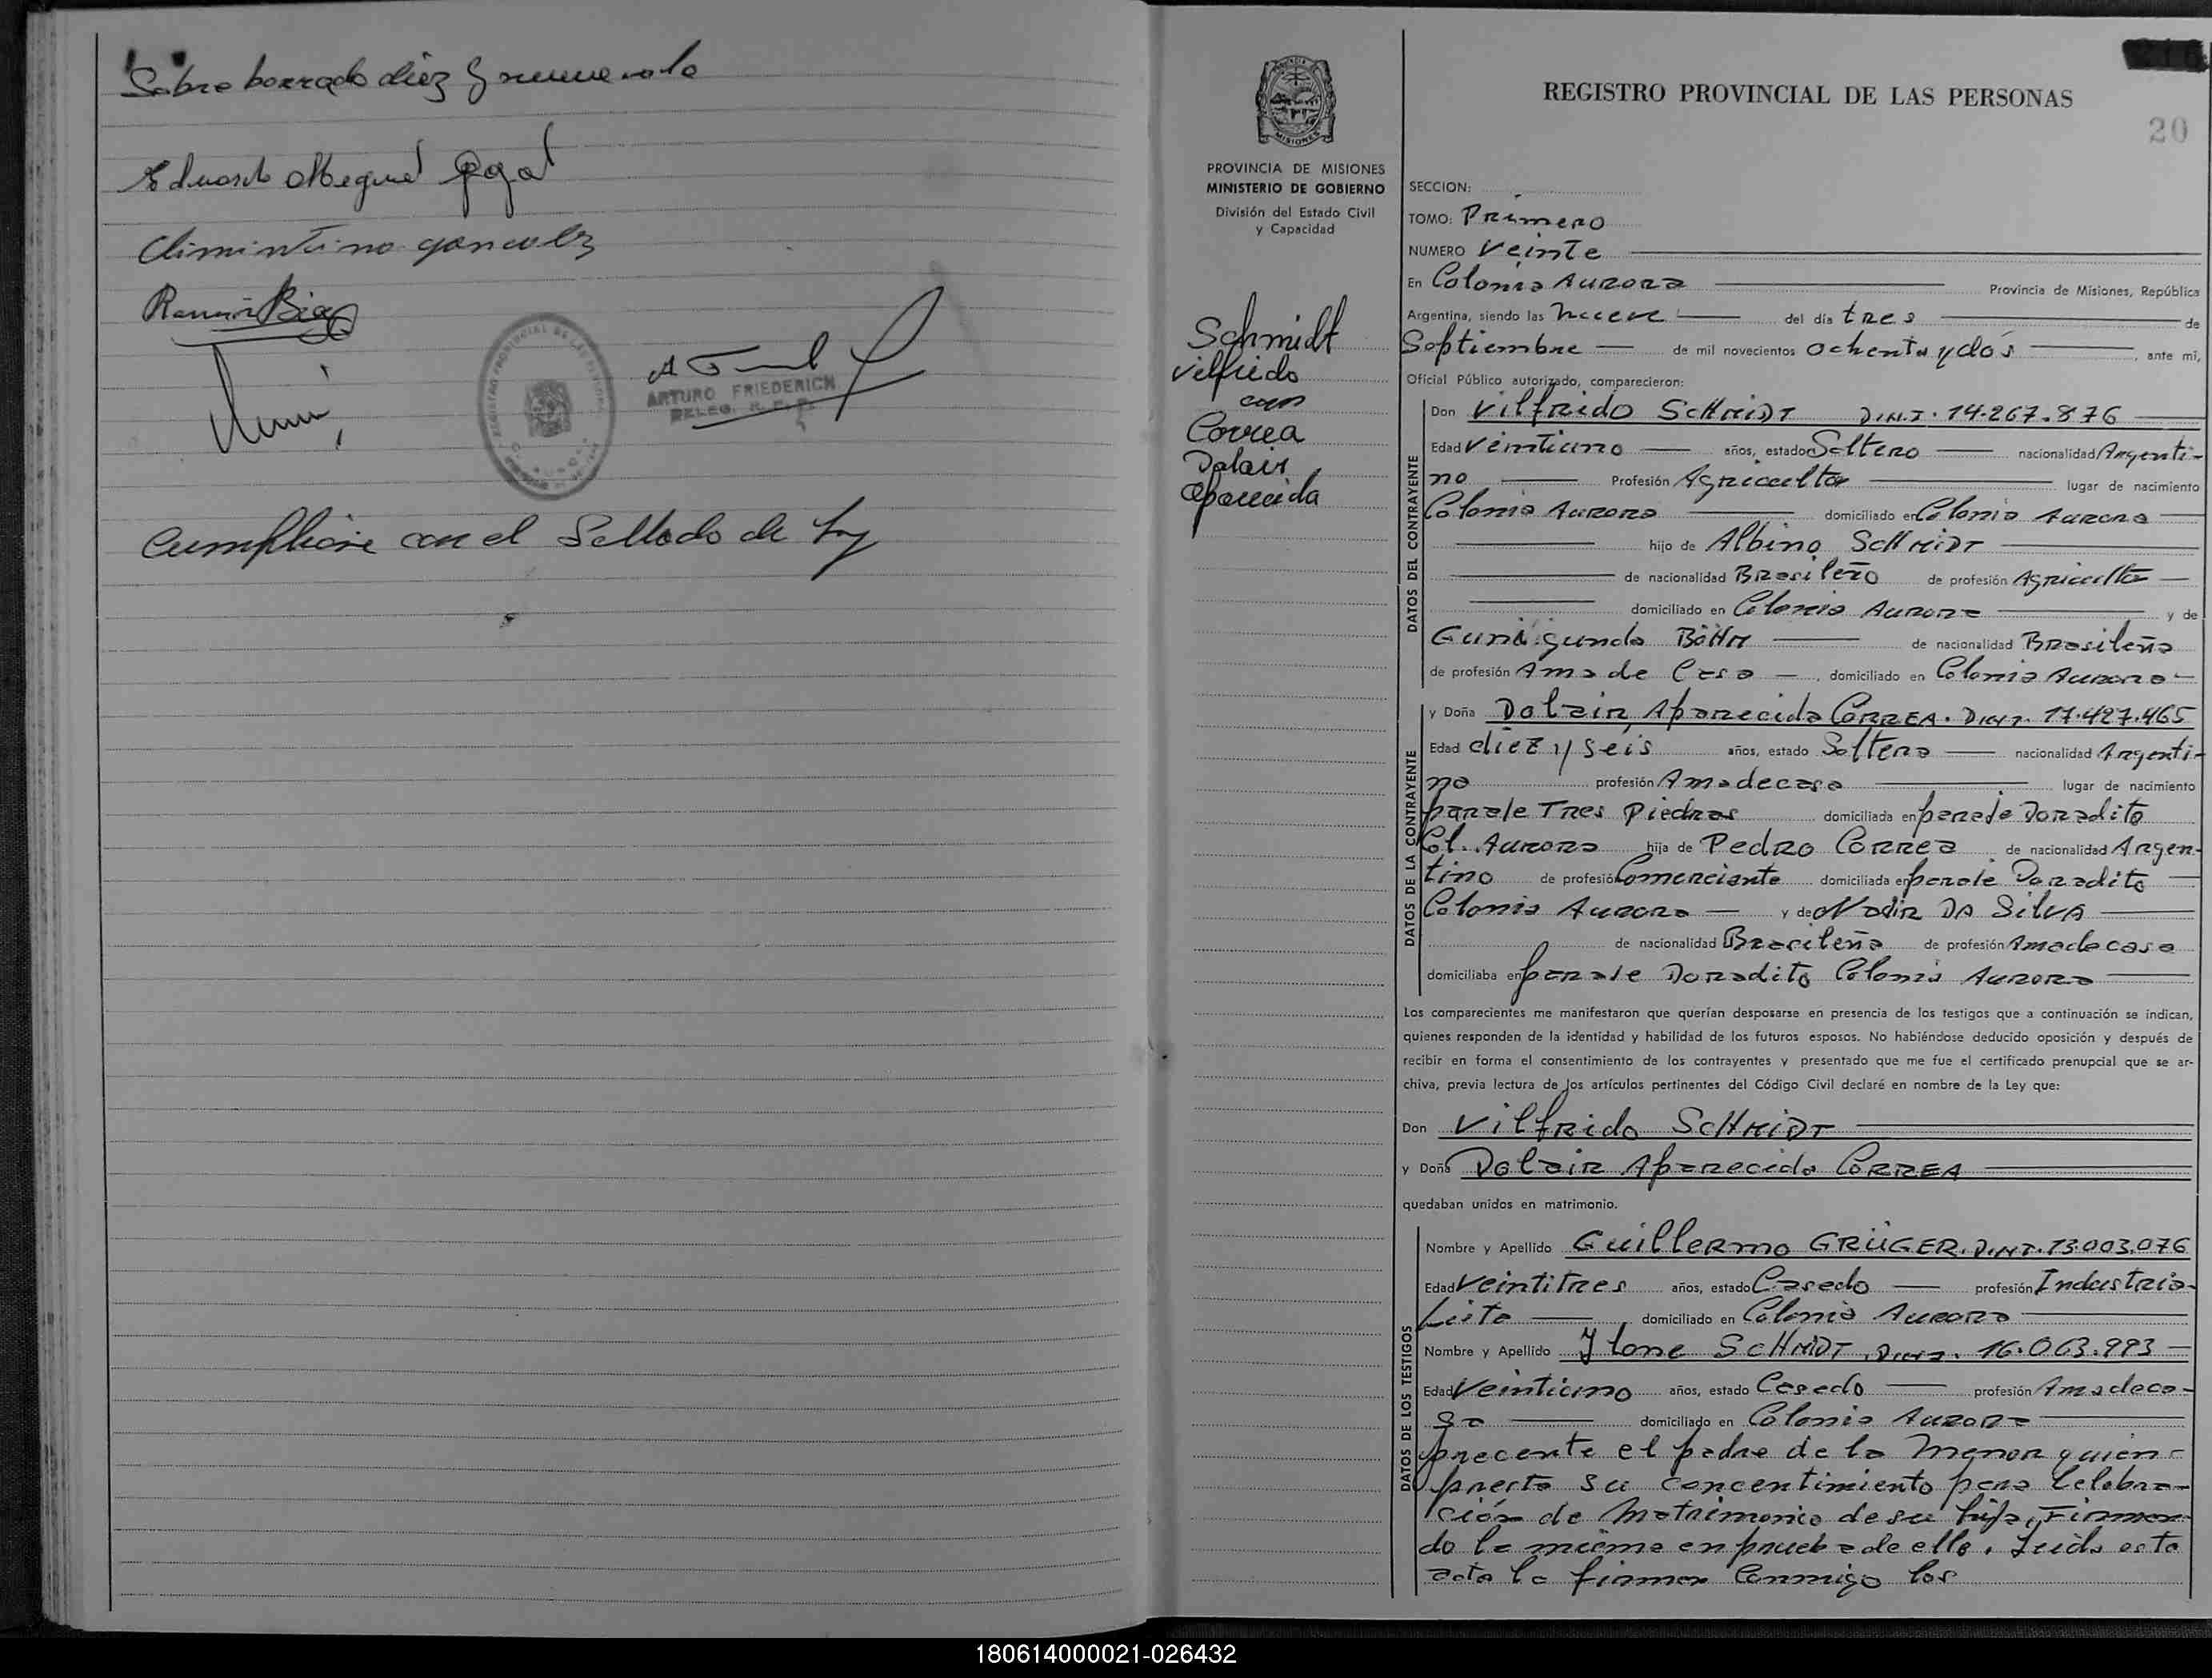 Sobre borrado diez y nueve vale
Eduardo Miguel
Ramón
ARTURO FRIEDERICH
DELEG. R. P. P.
Cumplióse con el Sellado de Ley
PROVINCIA DE MISIONES
MINISTERIO DE GOBIERNO
División del Estado Civil
y Capacidad
Schmidt
Vilfrido
con
Correa
Dolair
Aparecida
REGISTRO PROVINCIAL DE LAS PERSONAS
20
SECCION:
TOMO: Primero
NUMERO Veinte
En Colonia Aurora Provincia de Misiones, República
Argentina, siendo las nueve del día tres de
Septiembre de mil novecientos ochenta y dós, ante mí,
Oficial Público autorizado, comparecieron:
DATOS DEL CONTRAYENTE
Don Vilfrido SCHMIDT D.N.I. 14.267.876
Edad Veintiuno años, estado Soltero nacionalidad Argenti-
no Profesión Agricultor lugar de nacimiento
Colonia Aurora domiciliado en Colonia Aurora
hijo de Albino SCHMIDT
de nacionalidad Brasileño de profesión Agricultor
domiciliado en Colonia Aurora y de
Gunigunda BÖHM de nacionalidad Brasileña
de profesión Ama de Casa, domiciliado en Colonia Aurora
DATOS DE LA CONTRAYENTE
y Doña Dolair Aparecida CORREA. D.N.I. 17.427.465
Edad diez y seis años, estado Soltera nacionalidad Argenti-
na profesión Ama de casa lugar de nacimiento
paraje Tres Piedras domiciliada en paraje Doradito
Col. Aurora hija de Pedro Correa de nacionalidad Argen-
tino de profesión Comerciante domiciliada en paraje Doradito
Colonia Aurora y de Nadir DA SILVA
de nacionalidad Brasileña de profesión Ama de casa
domiciliaba en paraje Doradito Colonia Aurora
Los comparecientes me manifestaron que querían desposarse en presencia de los testigos que a continuación se indican,
quienes responden de la identidad y habilidad de los futuros esposos. No habiéndose deducido oposición y después de
recibir en forma el consentimiento de los contrayentes y presentado que me fue el certificado prenupcial que se ar-
chiva, previa lectura de los artículos pertinentes del Código Civil declaré en nombre de la Ley que:
Don Vilfrido SCHMIDT
y Doña Dolair Aparecida CORREA
quedaban unidos en matrimonio.
DATOS DE LOS TESTIGOS
Nombre y Apellido Guillermo GRÜGER. D.N.I. 13.003.076
Edad Veintitres años, estado Casado profesión Industria-
lista domiciliado en Colonia Aurora
Nombre y Apellido Ilone SCHMIDT D.N.I. 16.063.993
Edad Veintiuno años, estado Casado profesión Ama de ca-
sa domiciliado en Colonia Aurora
precente el padre de la menor quien
presta su concentimiento para celebra-
ción de Matrimonio de su hija, Firman-
do la misma en prueba de ello. Leida esta
acta la firman Conmigo los
180614000021-026432